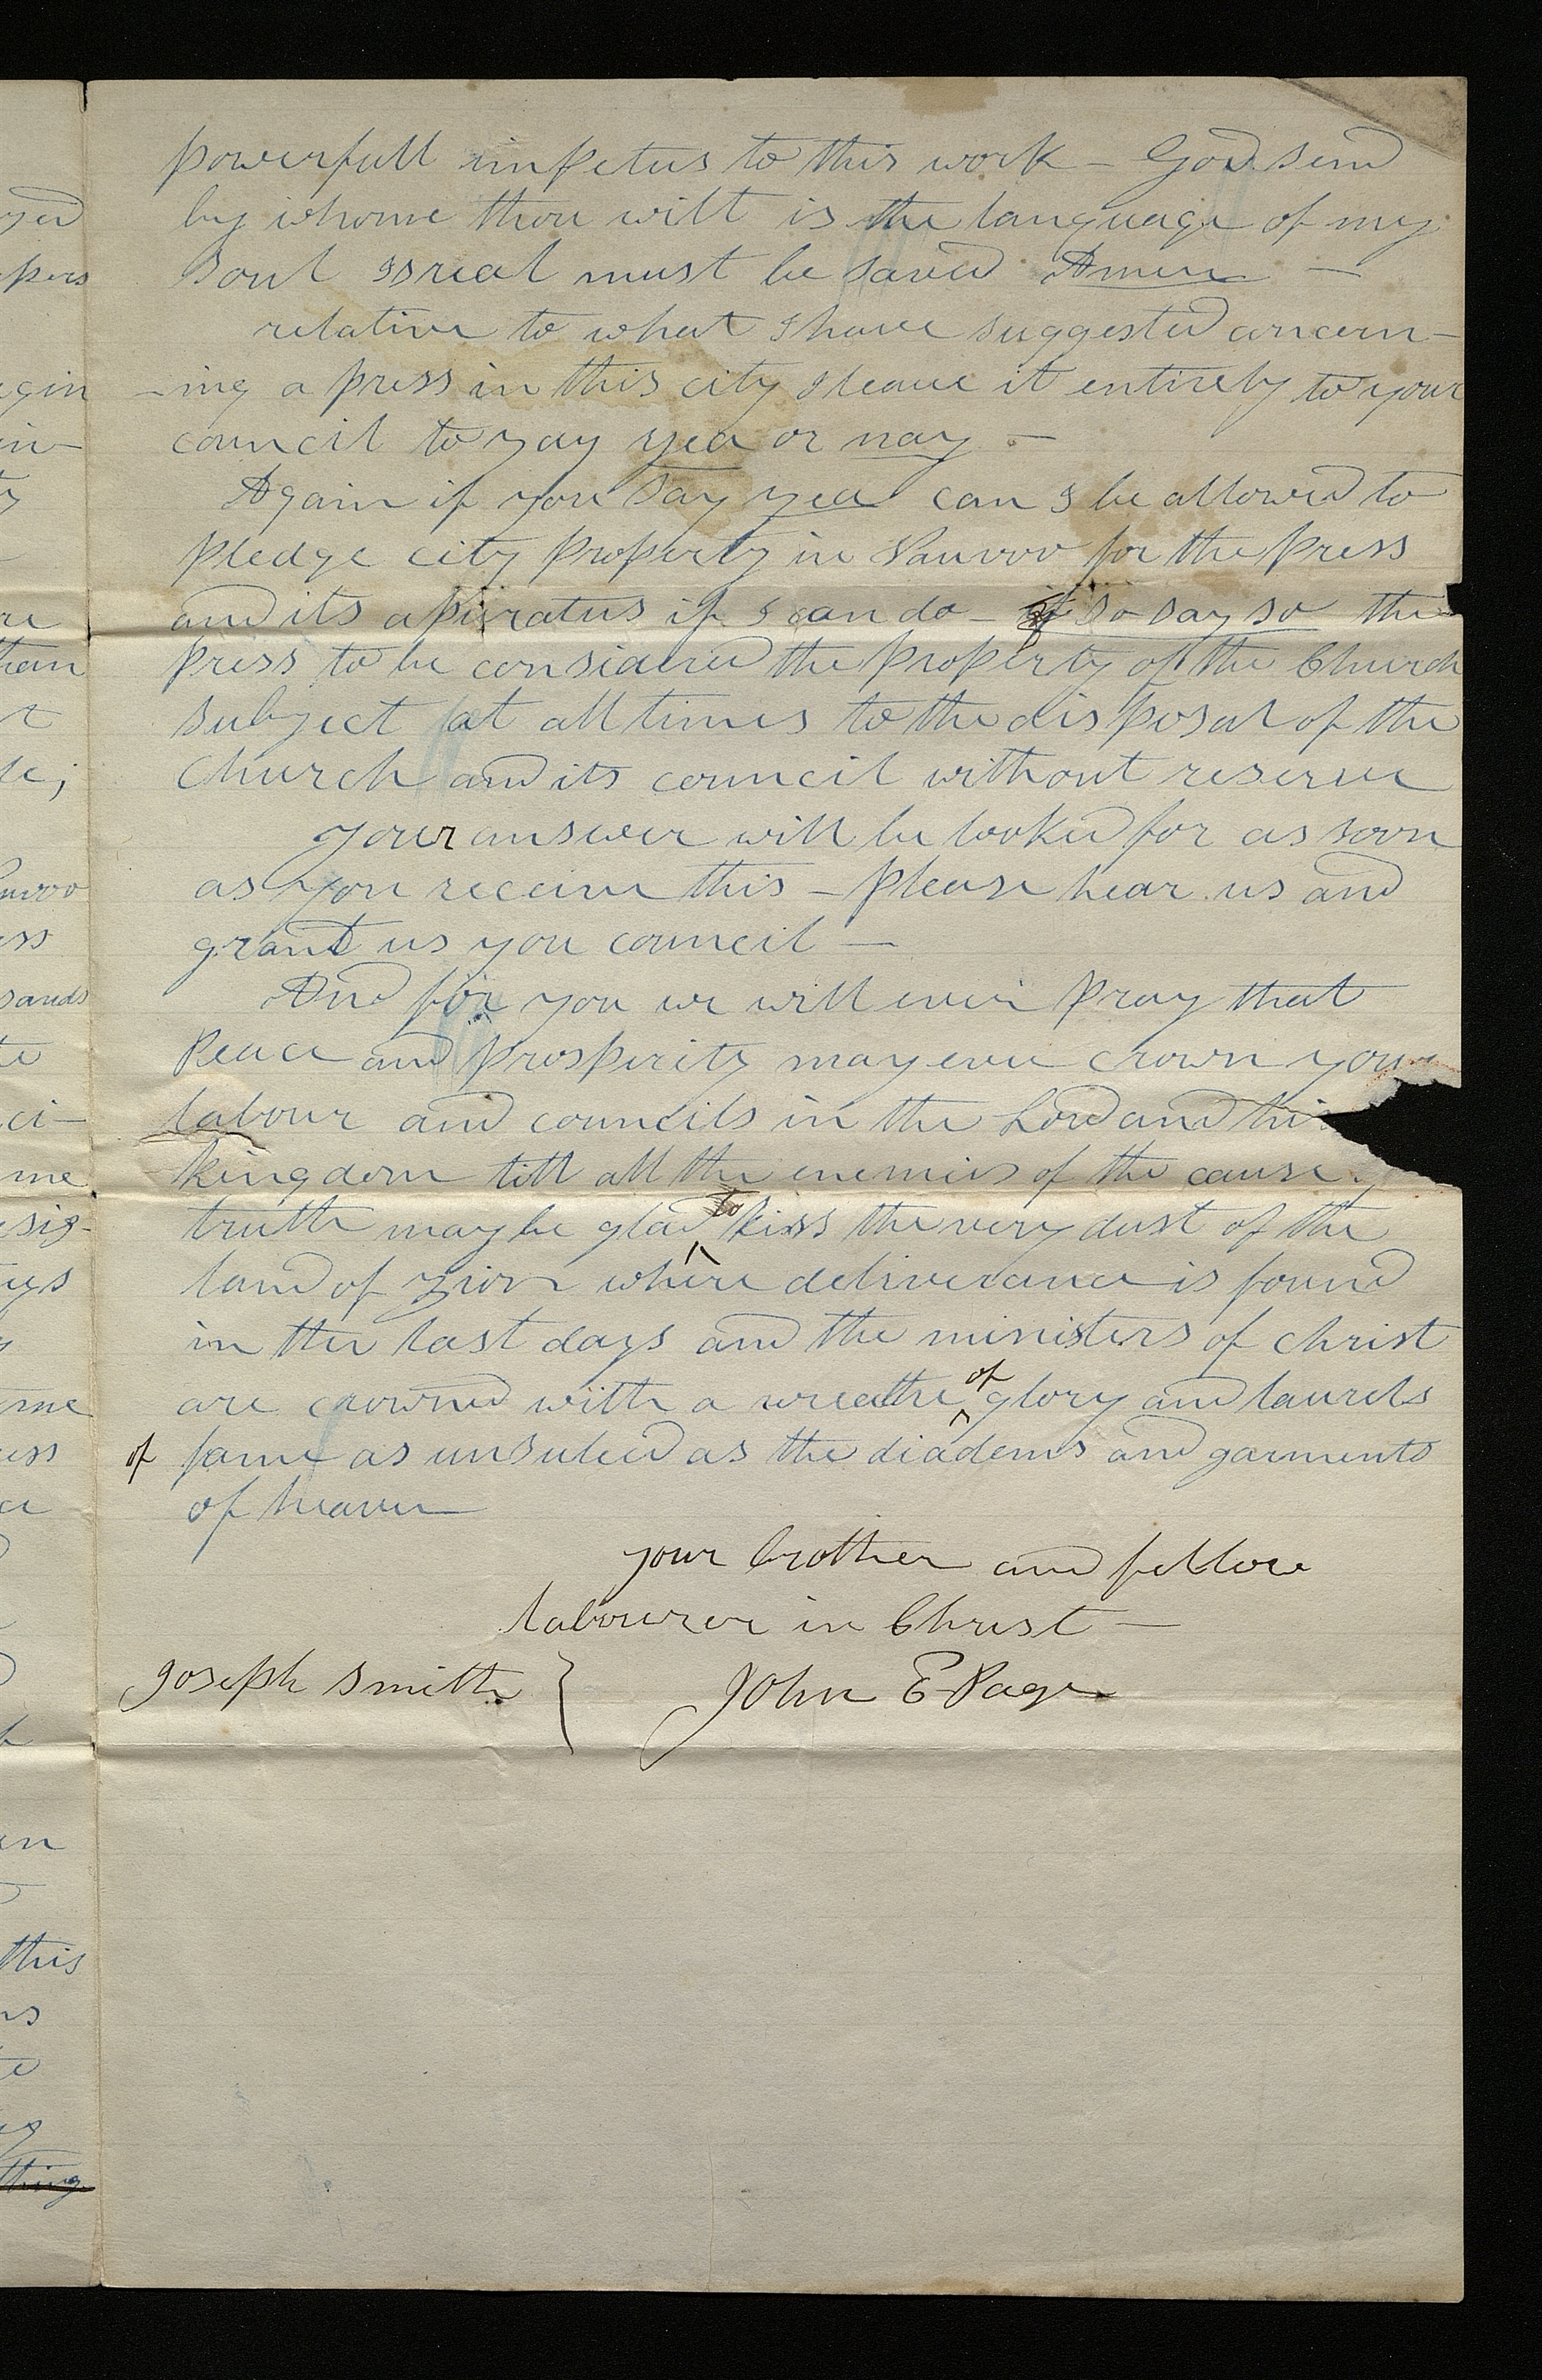 powerfull impetus to this work — God send
by whome thou wilt is the language of my
soul Isreal must be saved Amen —
relative to what I have suggested concern-
-ing a press in this city I leave it entirely to your
council to say yea or nay —
Again if you say yea can I be allowed to
pledge city property in Nauvoo for the press
and its aparatus if I can do — so say so the
press to be considered the property of the Church
subject at all times to the disposal of the
Church and its council without reserve
your answer will be looked for as soon
as you receive this — please hear us and
grant us you council —
And for you we will ever pray that
Peace and prosperity may ever crown your
labour and councils in the Lord and hi
kingdom till all the enemies of the cause
truth may be glad to kiss the very dust of the
land of Zion where deliverance is found
in the last days and the ministers of Christ
are crowned with a wreathe of glory and laurels
of fame as unsulied as the diadems and garments
of heaven
your brother and fellow
labourer in Christ —
Joseph Smith } John E Page